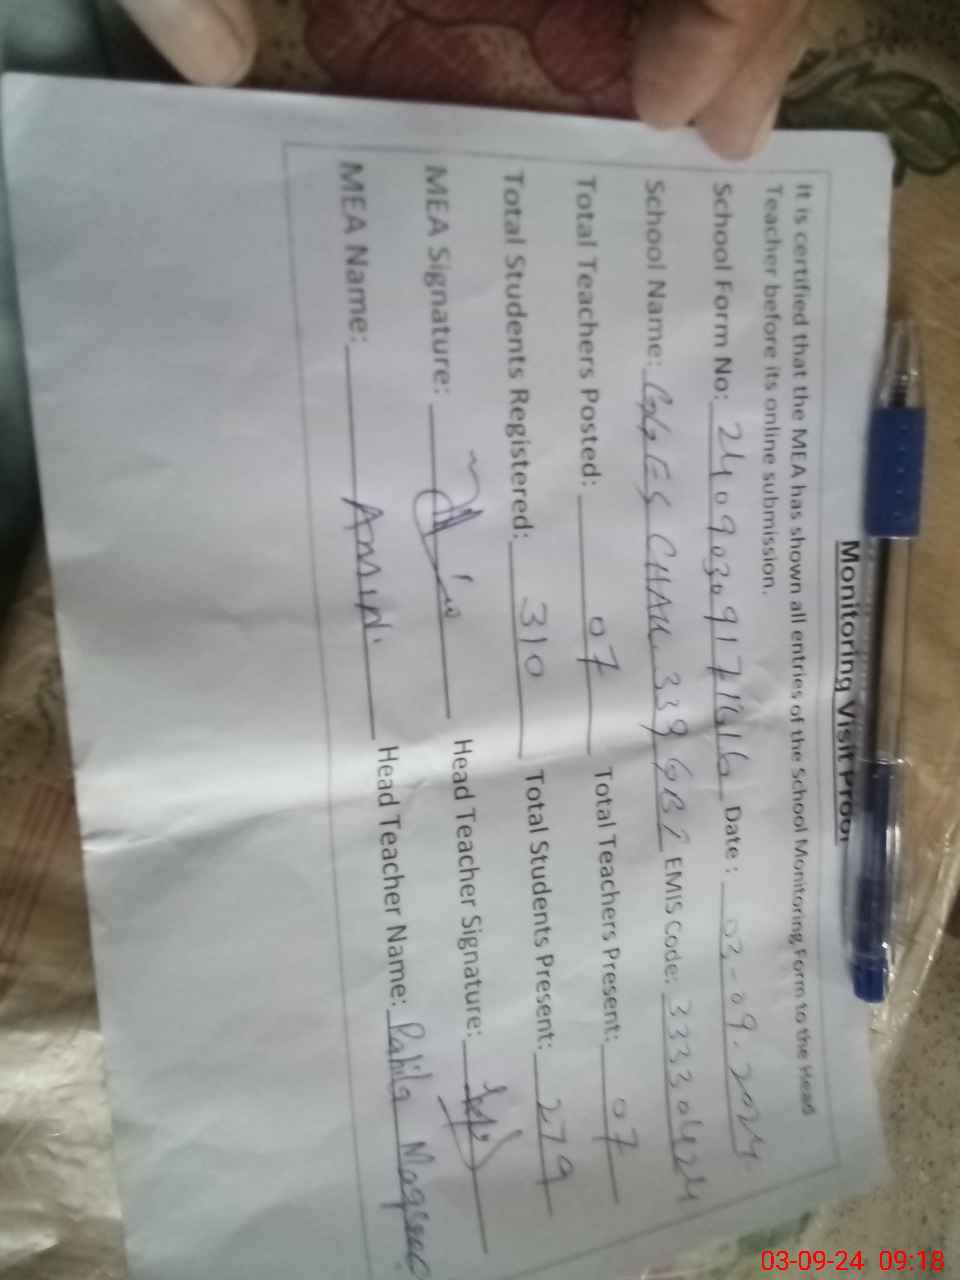 Monitoring Visit Proof
It is certified that the MEA has shown all entries of the School Monitoring Form to the Head
Teacher before its online submission.
School Form No: 24090309171616 Date: 03-09-2024
School Name: GGES CHAK 339 GB2 EMIS Code: 33330424
Total Teachers Posted: 07 Total Teachers Present: 07
Total Students Registered: 310 Total Students Present: 279
MEA Signature: Head Teacher Signature:
MEA Name: Head Teacher Name:
03-09-24 09:18